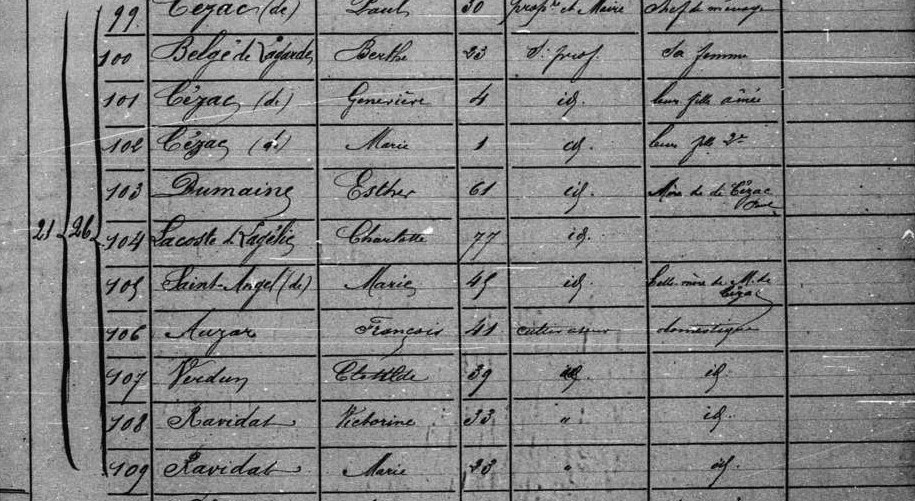 99 Cézac (de) Paul 30 prop.re et Maire chef de ménage
100 Belgé de Lagarde Berthe 23 S. prof. Sa femme
101 Cézac (de) Geneviève 4 id. leur fille aînée
102 Cézac (de) Marie 1 id. leur fille 2e
103 Dumaine Esther 61 id. Mère de de Cézac Paul
21 26 104 Lacoste de Charlotte 77 id.
105 Saint-Angel (de) Marie 45 id. Belle-mère de M. de Cézac
106 Auzar François 41 cultivateur domestique
107 Verdun Clotilde 39 id. id.
108 Ravidat Victorine 33 " id.
109 Ravidat Marie 23 " id.